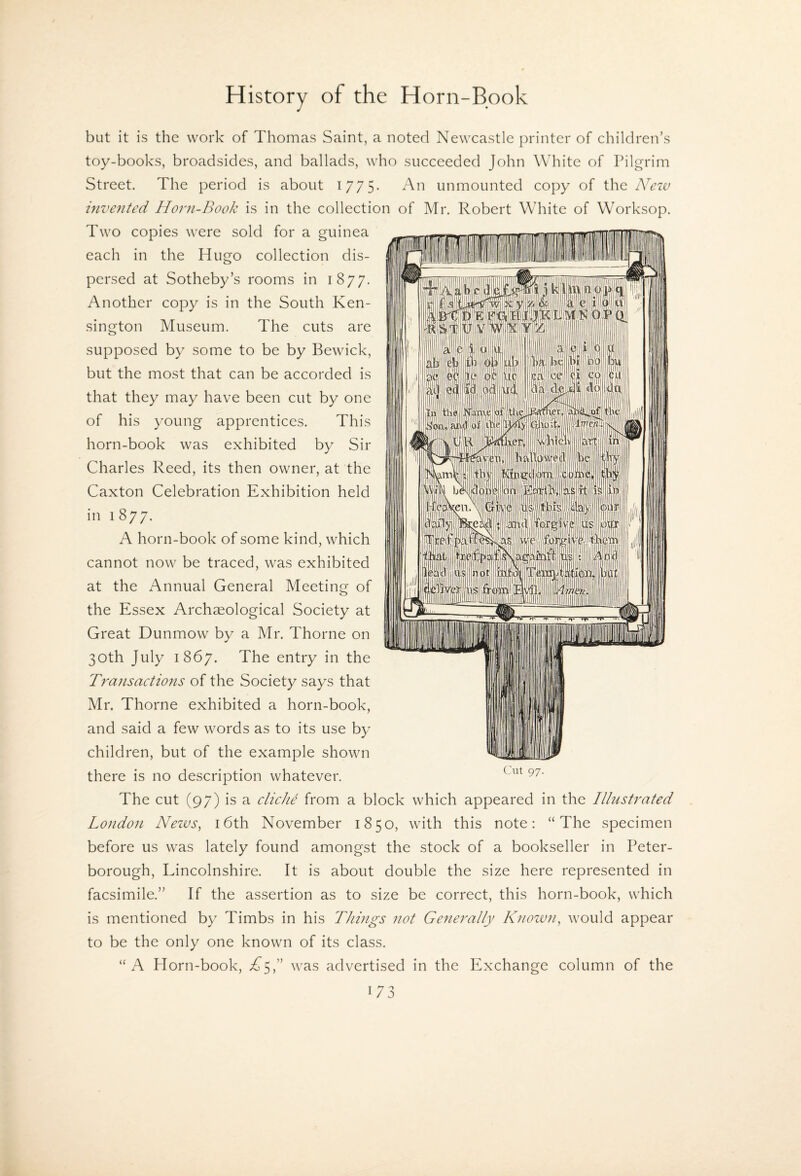 History of the Horn-Book
but it is the work of Thomas Saint, a noted Newcastle printer of children's
toy-books, broadsides, and ballads, who succeeded John White of Pilgrim
Street. The period is about 1775. An unmounted copy of the New
invented Horn-Book is in the collection of Mr. Robert White of Worksop.
Two copies were sold for a guinea
each in the Hugo collection dis-
persed at Sotheby's rooms in 1877.
Another copy is in the South Ken-
sington Museum. The cuts are
supposed by some to be by Bewick,
but the most that can be accorded is
that they may have been cut by one
of his young apprentices. This
horn-book was exhibited by Sir
Charles Reed, its then owner, at the
Caxton Celebration Exhibition held
in 1877.
A horn-book of some kind, which
cannot now be traced, was exhibited
at the Annual General Meeting of
the Essex Archæological Society at
Great Dunmow by a Mr. Thorne on
30th July 1867. The entry in the
Transactions of the Society says that
Mr. Thorne exhibited a horn-book,
and said a few words as to its use by
children, but of the example shown
there is no description whatever.
A a b c d e f j k l m n o p q
r ſ s t w x y z & a e i o u
A B C D E F G H I J K L M N O P Q
R S T U V W X Y Z
a e i o u a e i o u
ab eb ib ob ub ba be bi bo bu
ac ec ic oc uc ca ce ci co cu
ad ed id od ud da de di do du
In the Name of the Father, and of the
Son, and of the Holy Ghost. Amen.
UR Father, which art in
Heaven, hallowed be thy
Name; thy Kingdom come, thy
Will be done on Earth, as it is in
Heaven. Give us this day our
daily Bread; and forgive us our
Treſpaſſes, as we forgive them
that treſpaſs againſt us: And
lead us not into Temptation, but
deliver us from Evil. Amen.
Cut 97.
The cut (97) is a cliché from a block which appeared in the Illustrated
London News, 16th November 1850, with this note: "The specimen
before us was lately found amongst the stock of a bookseller in Peter-
borough, Lincolnshire. It is about double the size here represented in
facsimile." If the assertion as to size be correct, this horn-book, which
is mentioned by Timbs in his Things not Generally Known, would appear
to be the only one known of its class.
"A Horn-book, £5," was advertised in the Exchange column of the
173